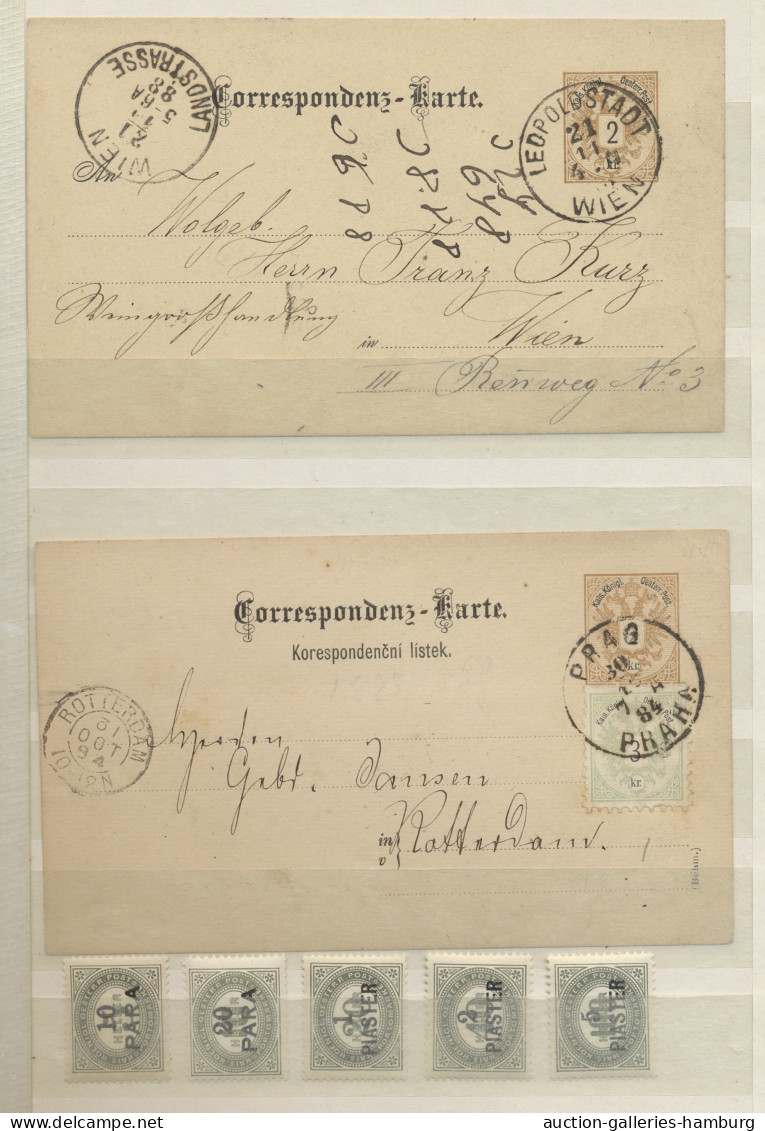 LANDSTRASSE
WIEN
21
11
5 6A
88
Correspondenz-Karte.
Kais. Königl. Oesterr. Post
2
kr.
LEOPOLDSTADT
21
11
WIEN
An
Wolgeb.
Herrn Franz Kurz
Weingroßhandlung
in Wien
III Reñweg No 3
Correspondenz-Karte.
Korespondenční lístek.
Kais. Königl. Oesterr. Post
kr.
PRAG
30
84
PRAHA
3
kr.
ROTTERDAM
31
OCT
84
Herren
Gebr. Jansen
in
v
Rotterdam.
(Böhm.)
10 PARA
20 PARA
1 PIASTER
2 PIASTER
5 PIASTER
auction-galleries-hamburg